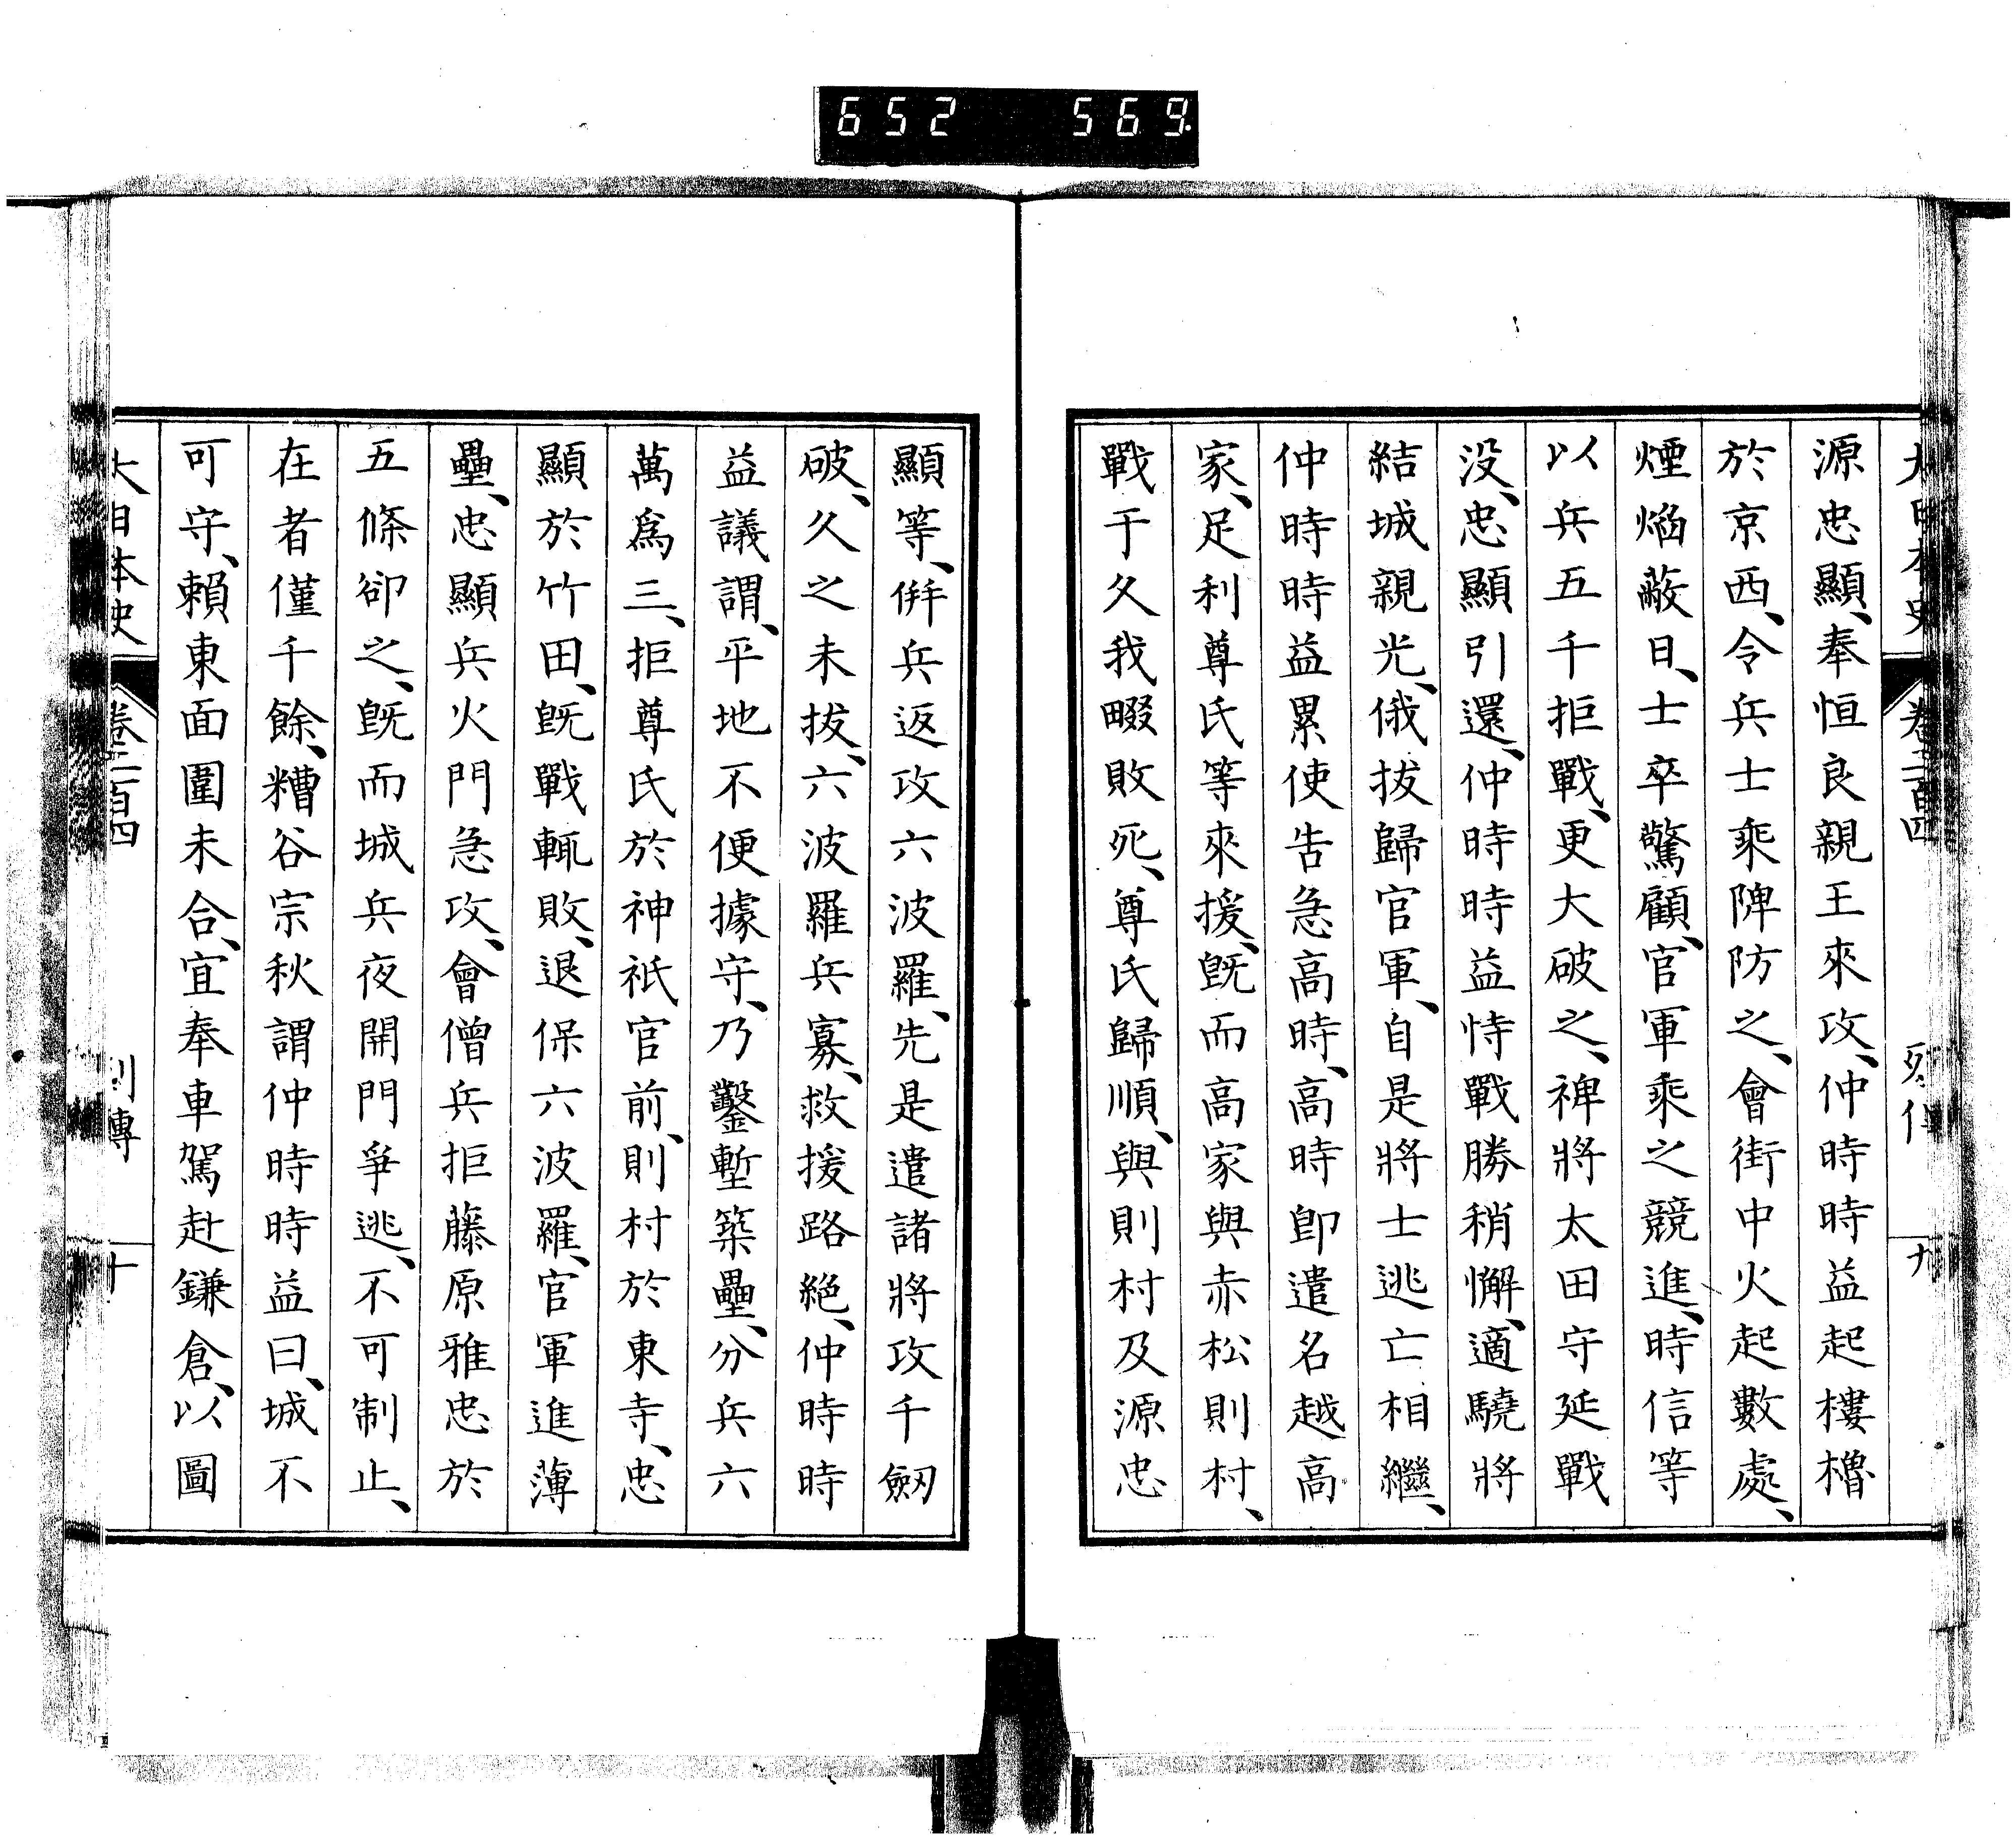 652 569
大日本史 卷二百四 列傳 九
源忠顯、奉恒良親王來攻、仲時時益起樓櫓
於京西、令兵士乘陴防之、會街中火起數處、
煙焰蔽日、士卒驚顧、官軍乘之競進、時信等
以兵五千拒戰、更大破之、裨將太田守延戰
没、忠顯引還、仲時時益恃戰勝稍懈、適驍將
結城親光、俄拔歸官軍、自是將士逃亡相繼、
仲時時益累使告急高時、高時卽遣名越高
家、足利尊氏等來援、旣而高家與赤松則村、
戰于久我畷敗死、尊氏歸順、與則村及源忠
顯等、併兵返攻六波羅、先是遣諸將攻千劒
破、久之未拔、六波羅兵寡、救援路絶、仲時時
益議謂、平地不便據守、乃鑿塹築壘、分兵六
萬爲三、拒尊氏於神祇官前、則村於東寺、忠
顯於竹田、旣戰輒敗、退保六波羅、官軍進薄
壘、忠顯兵火門急攻、會僧兵拒藤原雅忠於
五條卻之、旣而城兵夜開門爭逃、不可制止、
在者僅千餘、糟谷宗秋謂仲時時益曰、城不
可守、賴東面圍未合、宜奉車駕赴鎌倉、以圖
大日本史 卷二百四 列傳 十